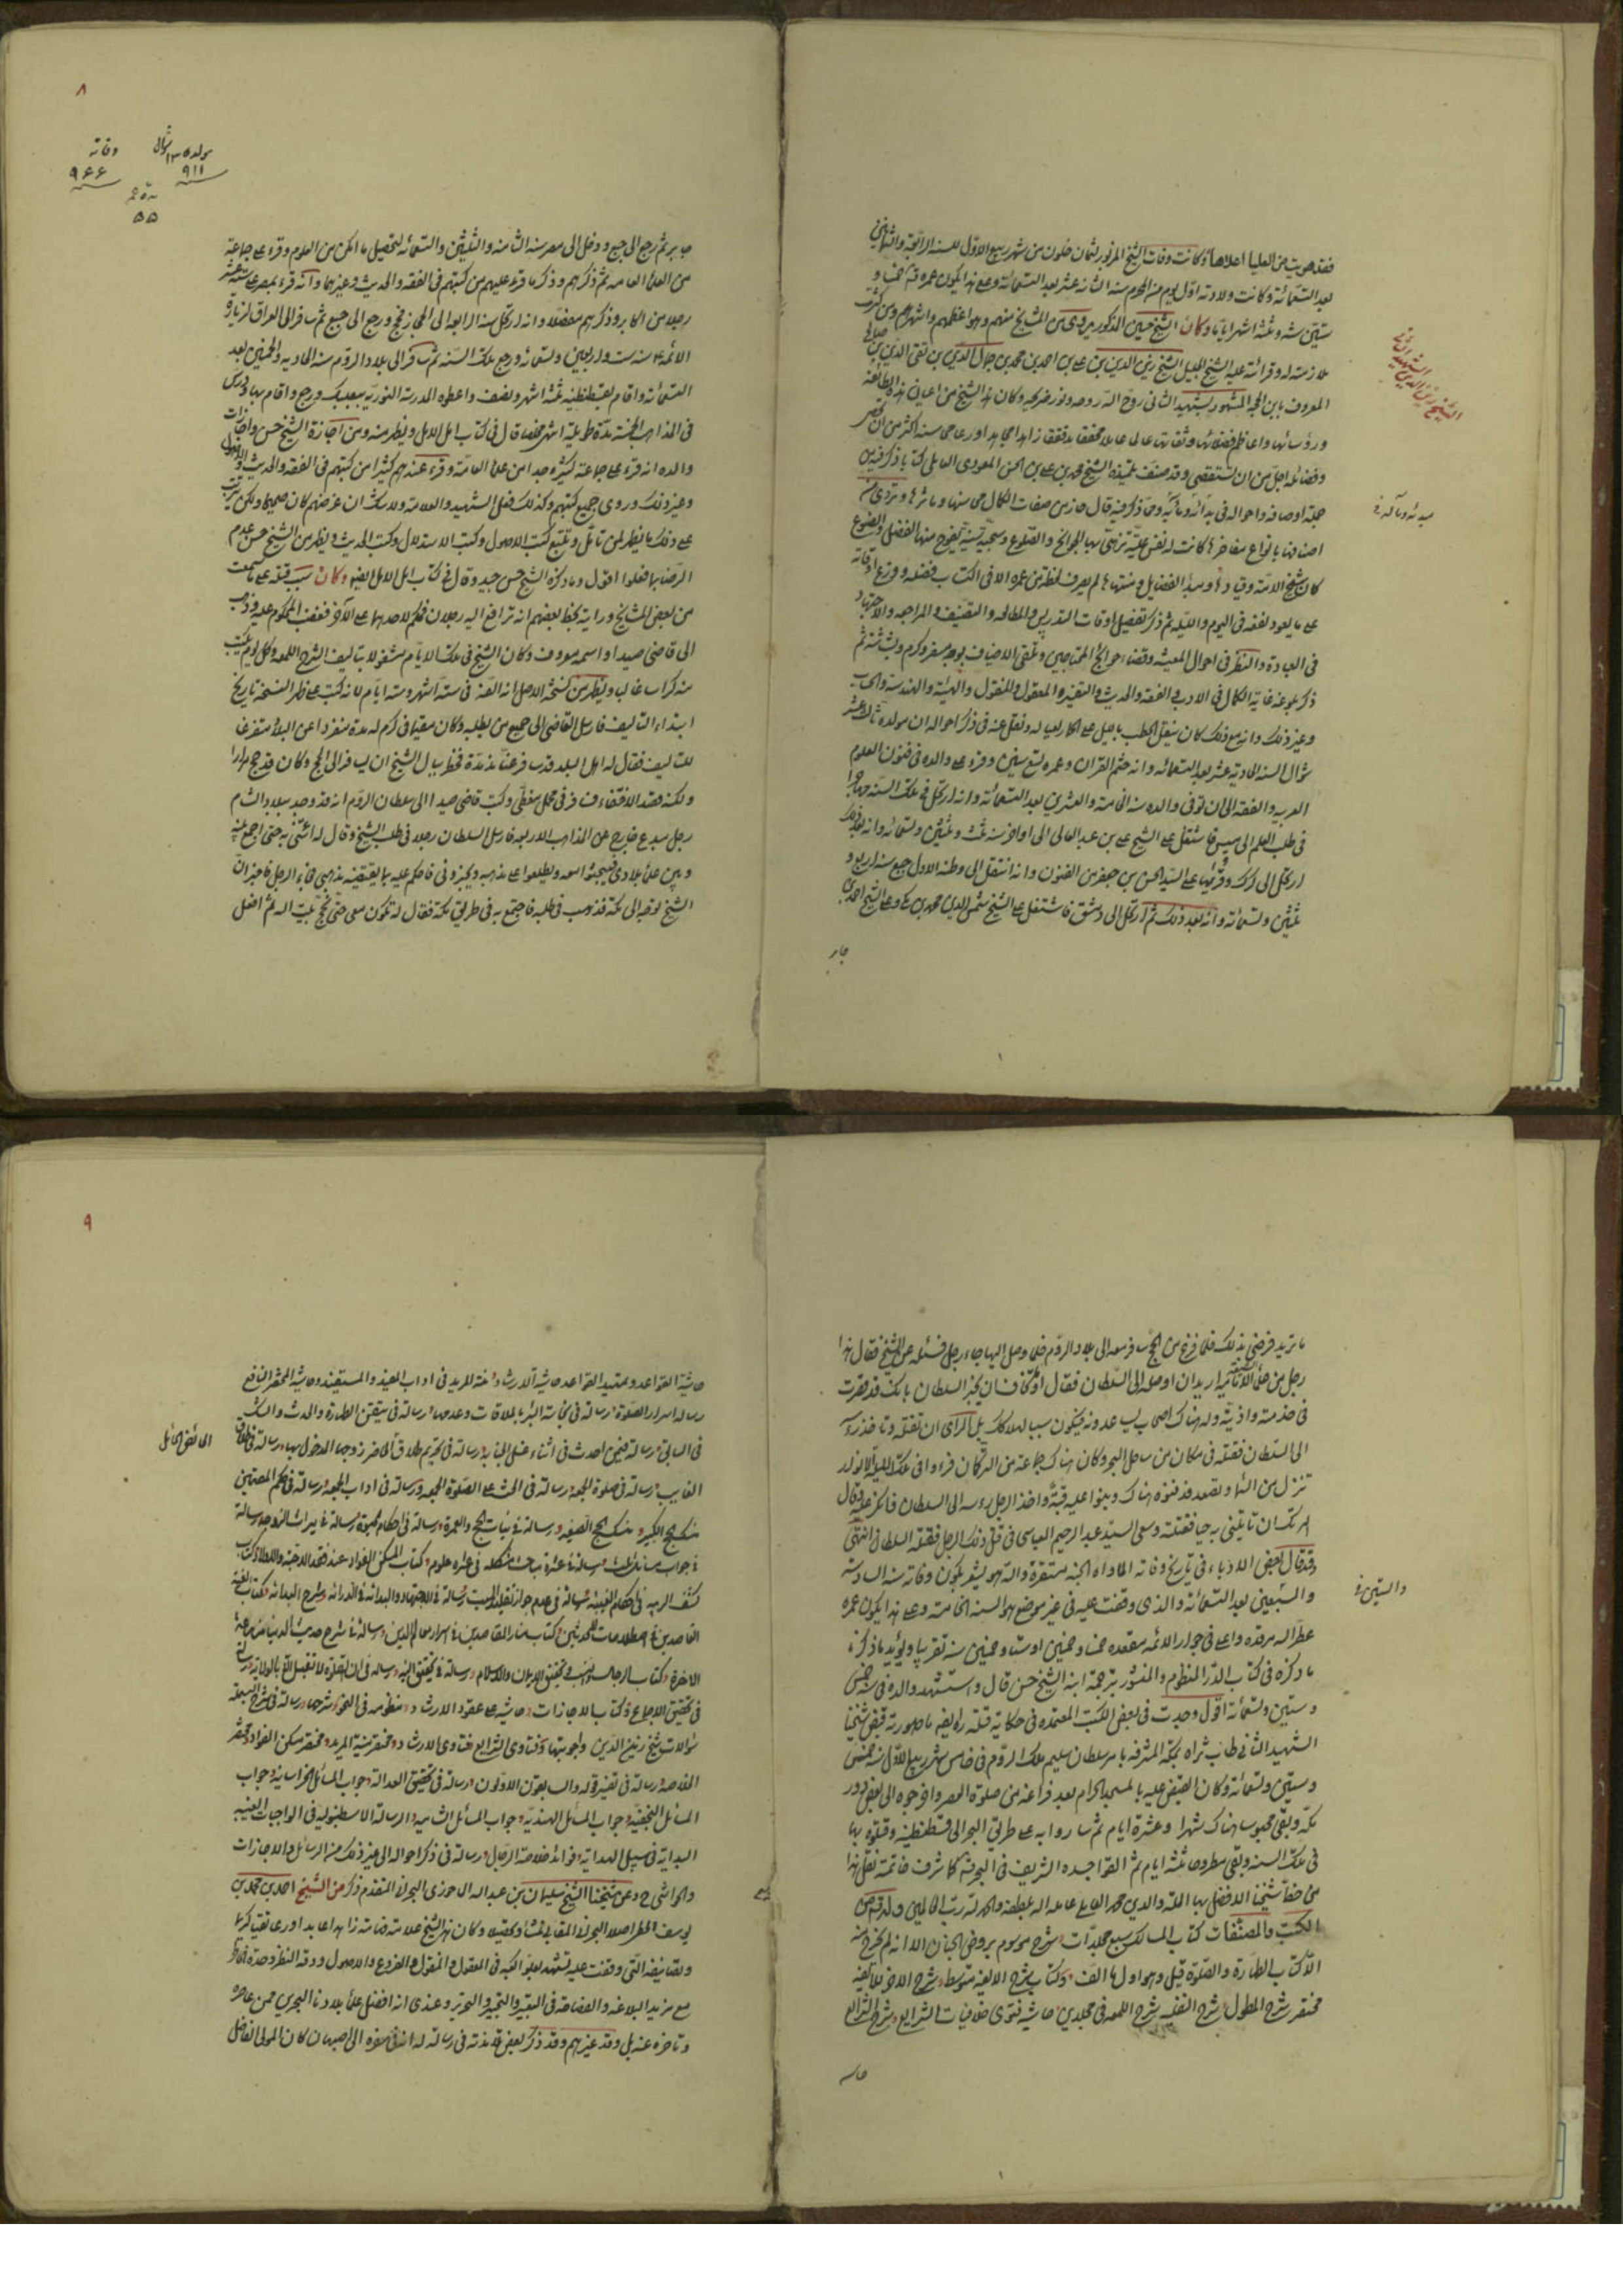 فقد هويت من العليا اعلاها وكانت وفات الشيخ المزبور لثمان خلون من شهر ربيع الاول للسنة الرابعة والثمانين
بعد التسعمائة وكانت ولادته اول يوم من المحرم سنة الثانية عشر بعد التسعمائة وعلى هذا يكون عمره
ستين سنة وثلثة اشهر اياما وكان الشيخ حسين المذكور يروى عن المشايخ منهم وهو اعظمهم واشهرهم ومن كثرت
ملازمته له وقرائته عليه الشيخ الجليل الشيخ زين الدين بن على بن احمد بن محمد بن جمال الدين بن تقى الدين بن صالح
المعروف بابن الحجة المشهور بشهيد الثانى روح الله روحه ونور ضريحه وكان هذا الشيخ من اعيان هذه الطائفة
ورؤسائها واعاظم فضلائها وثقاتها عالم عامل محقق مدقق زاهد مجاهد اورع محاسنه اكثر من ان تحصر
وفضائله اجل من ان تستقصى وقد صنف تلميذه الشيخ محمد بن على بن الحسن العودى العاملى كتابا ذكر فيه
جملة اوصافه واحواله فى بدائه ومآله ومما ذكر فيه قال حاز من صفات الكمال محاسنها ومآثرها وتردى من
اصنافها بانواع مفاخرها كانت له نفس علية تزهى بها الجوانح والضلوع وسجية سنية يفوح منها الفضل ويضوع
كان شيخ الامة وفتاها ومبدأ الفضايل ومنتهاها لم يصرف لحظة من عمره الا فى اكتساب فضيلة ووزع اوقاته
على ما يعود نفعه فى اليوم والليلة ثم ذكر تفصيل اوقات التدريس والمطالعة والتصنيف والمراجعة والاجتهاد
فى العبادة والنظر فى احوال المعيشة وقضاء حوائج المحتاجين وتلقى الاضياف بوجه مسفر وكرم وبشاشة ثم
ذكر بلوغه غاية الكمال فى الادب والفقه والحديث والتفسير والمعقول والمنقول والهيئة والهندسة والحساب
وغير ذلك وانه مع ذلك كان ينقل الحطب بالليل على حمار لعياله ونقل عنه فى ذكر احواله ان مولده ثالث عشر
شوال السنة الحادية عشر بعد التسعمائة وانه ختم القران وعمره تسع سنين وقرء على والده فى فنون العلوم
العربية والفقه الى ان توفى والده سنة الخامسة والعشرين بعد التسعمائة وانه ارتحل فى تلك السنة مهاجرا
فى طلب العلم الى ميس فاشتغل على الشيخ على بن عبد العالى الى اواخر سنة ثلث وثلثين وتسعمائة وانه بعد ذلك
ارتحل الى كرك وقرء بها على السيد الحسن بن جعفر من الفنون وانه انتقل الى وطنه الاول جبع سنة اربع و
ثلثين وتسعمائة وانه بعد ذلك ثم ارتحل الى دمشق فاشتغل على الشيخ شمس الدين محمد بن مكى وعلى الشيخ احمد بن
جابر
مبدئه ومآله
٨
مولده ١٣ شوال ٩١١
وفاته ٩٦٦
مدة عمر
٥٥
جابر ثم رجع الى جبع ودخل الى مصر سنة الثامنة والثلثين والتسعمائة لتحصيل ما امكن من العلوم وقرء على جماعة
من العلماء العامة ثم ذكرهم وذكر ما قرء عليهم من كتبهم فى الفقه والحديث وغيرهما وانه قرء بمصر على ستة عشر
رجلا من اكابر وذكرهم مفصلا وانه ارتحل سنة الرابعة الى الحجاز فحج ورجع الى جبع ثم سافر الى العراق لزيارة
الائمة ع سنة ست واربعين وتسعمائة ورجع تلك السنة ثم سافر الى بلاد الروم سنة الحادية والخمسين بعد
التسعمائة واقام بقسطنطنية ثلثة اشهر ونصف واعطوه المدرسة النورية ببعلبك ورجع واقام بها ودرس
فى المذاهب الخمسة مدة طويلة انتهى ملخصا قال فى كتاب امل الامل ويظهر منه ومن اجازة الشيخ حسن واجازات
والده انه قرء على جماعة كثيرة جدا من علماء العامة وقرء عندهم كثيرا من كتبهم فى الفقه والحديث والاصول
وغير ذلك وروى جميع كتبهم وكذلك فعل الشهيد والعلامة ولا شك ان غرضهم كان صحيحا ولكن ترتب
على ذلك ما يظهر لمن تأمل وتتبع كتب الاصول وكتب الاستدلال وكتب الحديث ويظهر من الشيخ حسن عدم
الرضا بما فعلوا اقول وما ذكره الشيخ حسن جيد وقال فى كتاب امل الامل ايضا وكان سبب قتله على ما سمعت
من بعض المشايخ ورايته بخط بعضهم انه ترافع اليه رجلان فحكم لاحدهما على الآخر فغضب المحكوم عليه وذهب
الى قاضى صيدا واسمه معروف وكان الشيخ فى تلك الايام مشغولا بتاليف الشرح اللمعة وكل يوم يكتب
منه كراسا غالبا ويظهر من نسخة الاصل انه الفه فى ستة اشهر وستة ايام لانه كتب على ظهر النسخة تاريخ
ابتداء التاليف فارسل القاضى الى جبع من يطلبه وكان مقيما فى كرم له مدة منفردا عن البلد متفرغا
للتاليف فقال له اهل البلد قد سافر عنا منذ مدة فخطر ببال الشيخ ان يسافر الى الحج وكان قد حج مرارا
ولكنه قصد الاختفاء فسافر فى محمل مغطى وكتب قاضى صيدا الى سلطان الروم انه قد وجد ببلاد الشام
رجل مبدع خارج عن المذاهب الاربعة فارسل السلطان رجلا فى طلب الشيخ وقال له ائتنى به حيا حتى اجمع بينه
وبين علماء بلادى فيبحثوا معه ويطلعوا على مذهبه ويخبرونى فاحكم عليه بما يقتضيه مذهبى فجاء الرجل فاخبر ان
الشيخ توجه الى مكة فذهب فى طلبه فاجتمع به فى طريق مكة فقال له تكون معى حتى نحج بيت الله ثم افعل
ما تريد فرضى بذلك فلما فرغ من الحج سافر معه الى بلاد الروم فلما وصل اليها جاء رجل فسئله عن الشيخ فقال هذا
رجل من علماء الامامية اريد ان اوصله الى السلطان فقال او ما تخاف ان يخبر السلطان بانك قد قصرت
فى خدمته واذيته وله هناك اصحاب يساعدونه فيكون سببا لهلاكك بل الراى ان تقتله وتاخذ راسه
الى السلطان فقتله فى مكان من ساحل البحر وكان هناك جماعة من التركمان فرءوا فى تلك الليلة الانوار
تنزل من السماء وتصعد فدفنوه هناك وبنوا عليه قبة واخذ الرجل راسه الى السلطان فانكر عليه وقال
امرتك ان تاتينى به حيا فقتلته وسعى السيد عبد الرحيم العباسى فى قتل ذلك الرجل فقتله السلطان انتهى
وقد قال بعض الادباء فى تاريخ وفاته الاواه الجنة مستقره والله وهو يشعر بكون وفاته سنة السادسة
والستين بعد التسعمائة والذى وقفت عليه فى غير موضع هو السنة الخامسة وعلى هذا يكون عمره
عطر الله مرقده واعلى فى جوار الائمة مقعده خمسا وخمسين او ستا وخمسين سنة تقريبا ويؤيد ما ذكرناه
ما ذكره فى كتاب الدر المنظوم والمنثور بترجمة ابنه الشيخ حسن قال واستشهد والده فى سنة خمس
وستين وتسعمائة اقول وجدت فى بعض الكتب المعتمدة فى حكاية قتله ره ايضا ما صورته قبض شيخنا
الشهيد الثانى طاب ثراه بمكة المشرفة بامر سلطان سليم ملك الروم فى خامس شهر ربيع الاول سنة خمس
وستين وتسعمائة وكان القبض عليه بالمسجد الحرام بعد فراغه من صلوة العصر واخرجوه الى بعض دور
مكة وبقى محبوسا هناك شهرا وعشرة ايام ثم ساروا به على طريق البحر الى قسطنطنية وقتلوه بها
فى تلك السنة وبقى مطروحا ثلثة ايام ثم القوا جسده الشريف فى البحر
الكتب والمصنفات كتاب المسالك سبع مجلدات وشرح موسوم بروض الجنان الا انه لم يخرج منه
الا كتاب الطهارة والصلوة قيل وهو اول ما الف وكتاب شرح الالفية متوسط وشرح الاخر للالفية
مختصر وشرح المطول وشرح النفلية وشرح اللمعة فى مجلدين وحاشية فتوى خلافيات الشرايع وشرح الشرايع
حاشية
والستين
٩
حاشية القواعد وتمهيد القواعد حاشية الارشاد ومنية المريد فى اداب المفيد والمستفيد وحاشية المختصر النافع
رسالة اسرار الصلوة رسالة فى نجاسة البئر بالملاقات وعدمها رسالة فى تيقن الطهارة والحدث والشك
فى السابق رسالة فيمن احدث فى اثناء غسل الجنابة رسالة فى تحريم طلاق الحائض الحاضر زوجها المدخول بها رسالة فى طلاق
الغايب رسالة فى صلوة الجمعة رسالة فى الحث على الصلوة الجمعة ورسالة فى اداب الجمعة رسالة فى حكم المقيمين
منسك الحج الكبير ومنسك الحج الصغير ورسالة فى نيات الحج والعمرة ورسالة فى احكام الحبوة رسالة فى ميراث الزوجة رسالة
كشف الريبة فى احكام الغيبة رسالة فى عدم جواز تقليد الميت رسالة فى الاجتهاد والبداية فى الدراية وشرح البداية كتاب غنية
القاصدين فى اصطلاحات المحدثين وكتاب منار القاصدين فى اسرار معالم الدين ورسالة فى شرح حديث الدنيا مزرعة
الاخرة وكتاب الرجال والنسب فى تحقيق الايمان والاسلام ورسالة فى تحقيق النية ورسالة فى ان الصلوة لا تقبل الا بالولاية
فى تحقيق الاجماع وكتاب الاجازات وحاشية على عقود الارشاد ومنظومة فى النحو وشرحها رسالة فى شرح البسملة
سؤالات شيخ زين الدين واجوبتها وفتاوى الشرايع فتاوى الارشاد ومختصر منية المريد ومختصر مسكن الفؤاد ومختصر
الخلاصة رسالة فى تفسير قوله والسابقون الاولون ورسالة فى تحقيق العدالة وجواب المسائل الخراسانية وجواب
المسائل النجفية وجواب المسائل الهندية وجواب المسائل الشامية والرسالة الاسطنبولية فى الواجبات العينية
البداية فى سبيل الهداية وفوائد خلاصة الرجال ورسالة فى ذكر احواله الى غير ذلك من الرسائل والاجازات
والحواشى ح وعن شيخنا الشيخ سليمان بن عبد الله الماحوزى البحرانى المتقدم ذكره عن الشيخ احمد بن محمد بن
يوسف الخطى اصلا البحرانى المقابى منشأ وتحصيلا وكان هذا الشيخ علامة فهامة زاهدا عابدا ورعا تقيا كريما
وتصانيفه التى وقفت عليها تشهد بعلو كعبه فى المعقول والمنقول والفروع والاصول ودقة النظر وحدة خاطر
مع مزيد البلاغة والفصاحة فى التعبير والتحبير والتحرير وعندى انه افضل علماء بلادنا البحرين ممن عاصره
وتاخر عنه بل وقد غيرهم وقد ذكر بعض تلامذته فى رسالة له انه فى سفره الى اصبهان كان المولى الفاضل
الحائض الحائل